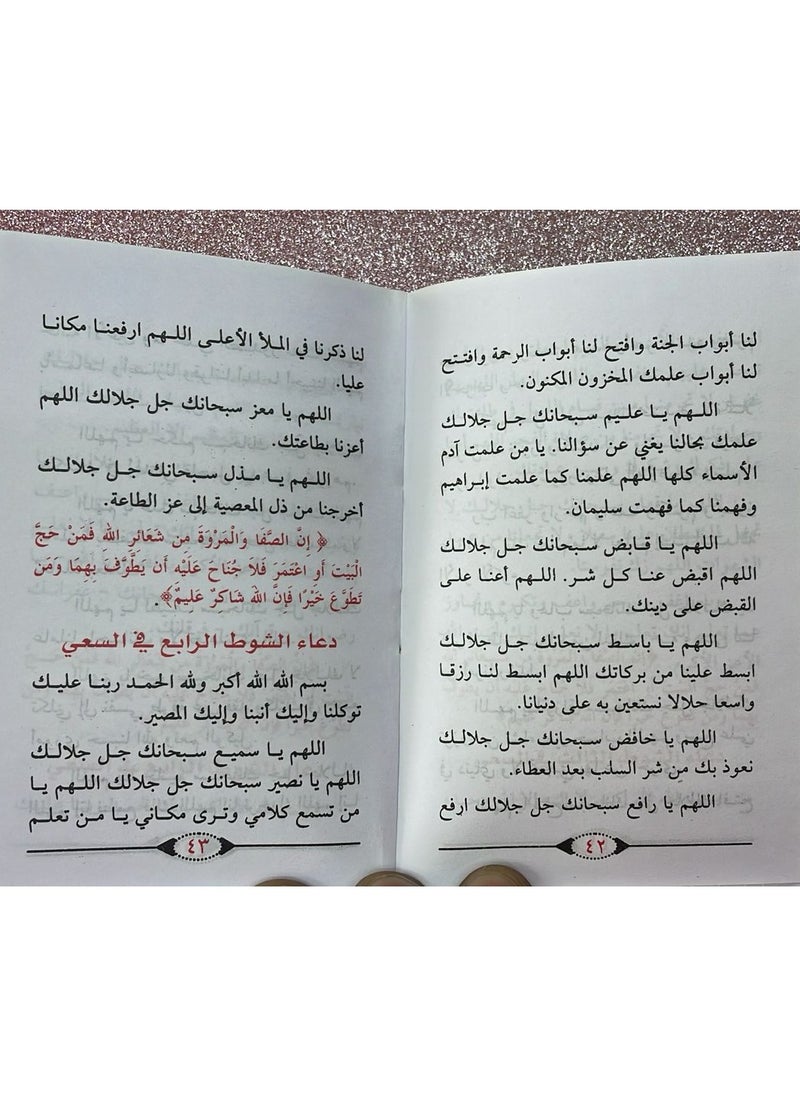 لنا أبواب الجنة وافتح لنا أبواب الرحمة وافتح
لنا أبواب علمك المخزون المكنون.
اللهم يا عليم سبحانك جل جلالك
علمك بحالنا يغني عن سؤالنا. يا من علمت آدم
الأسماء كلها اللهم علمنا كما علمت إبراهيم
وفهمنا كما فهمت سليمان.
اللهم يا قابض سبحانك جل جلالك
اللهم اقبض عنا كل شر. اللهم أعنا على
القبض على دينك.
اللهم يا باسط سبحانك جل جلالك
ابسط علينا من بركاتك اللهم ابسط لنا رزقا
واسعا حلالا نستعين به على دنيانا.
اللهم يا خافض سبحانك جل جلالك
نعوذ بك من شر السلب بعد العطاء.
اللهم يا رافع سبحانك جل جلالك ارفع
٤٢
لنا ذكرنا في الملأ الأعلى اللهم ارفعنا مكانا
عليا.
اللهم يا معز سبحانك جل جلالك اللهم
أعزنا بطاعتك.
اللهم يا مذل سبحانك جل جلالك
أخرجنا من ذل المعصية إلى عز الطاعة.
﴿ إِنَّ الصَّفَا وَالْمَرْوَةَ مِن شَعَائِرِ اللهِ فَمَنْ حَجَّ
الْبَيْتَ أَوِ اعْتَمَرَ فَلَا جُنَاحَ عَلَيْهِ أَن يَطَّوَّفَ بِهِمَا وَمَن
تَطَوَّعَ خَيْرًا فَإِنَّ اللهَ شَاكِرٌ عَلِيمٌ﴾.
دعاء الشوط الرابع في السعي
بسم الله الله أكبر ولله الحمد ربنا عليك
توكلنا وإليك أنبنا وإليك المصير.
اللهم يا سميع سبحانك جل جلالك
اللهم يا نصير سبحانك جل جلالك اللهم يا
من تسمع كلامي وترى مكاني يا من تعلم
٤٣